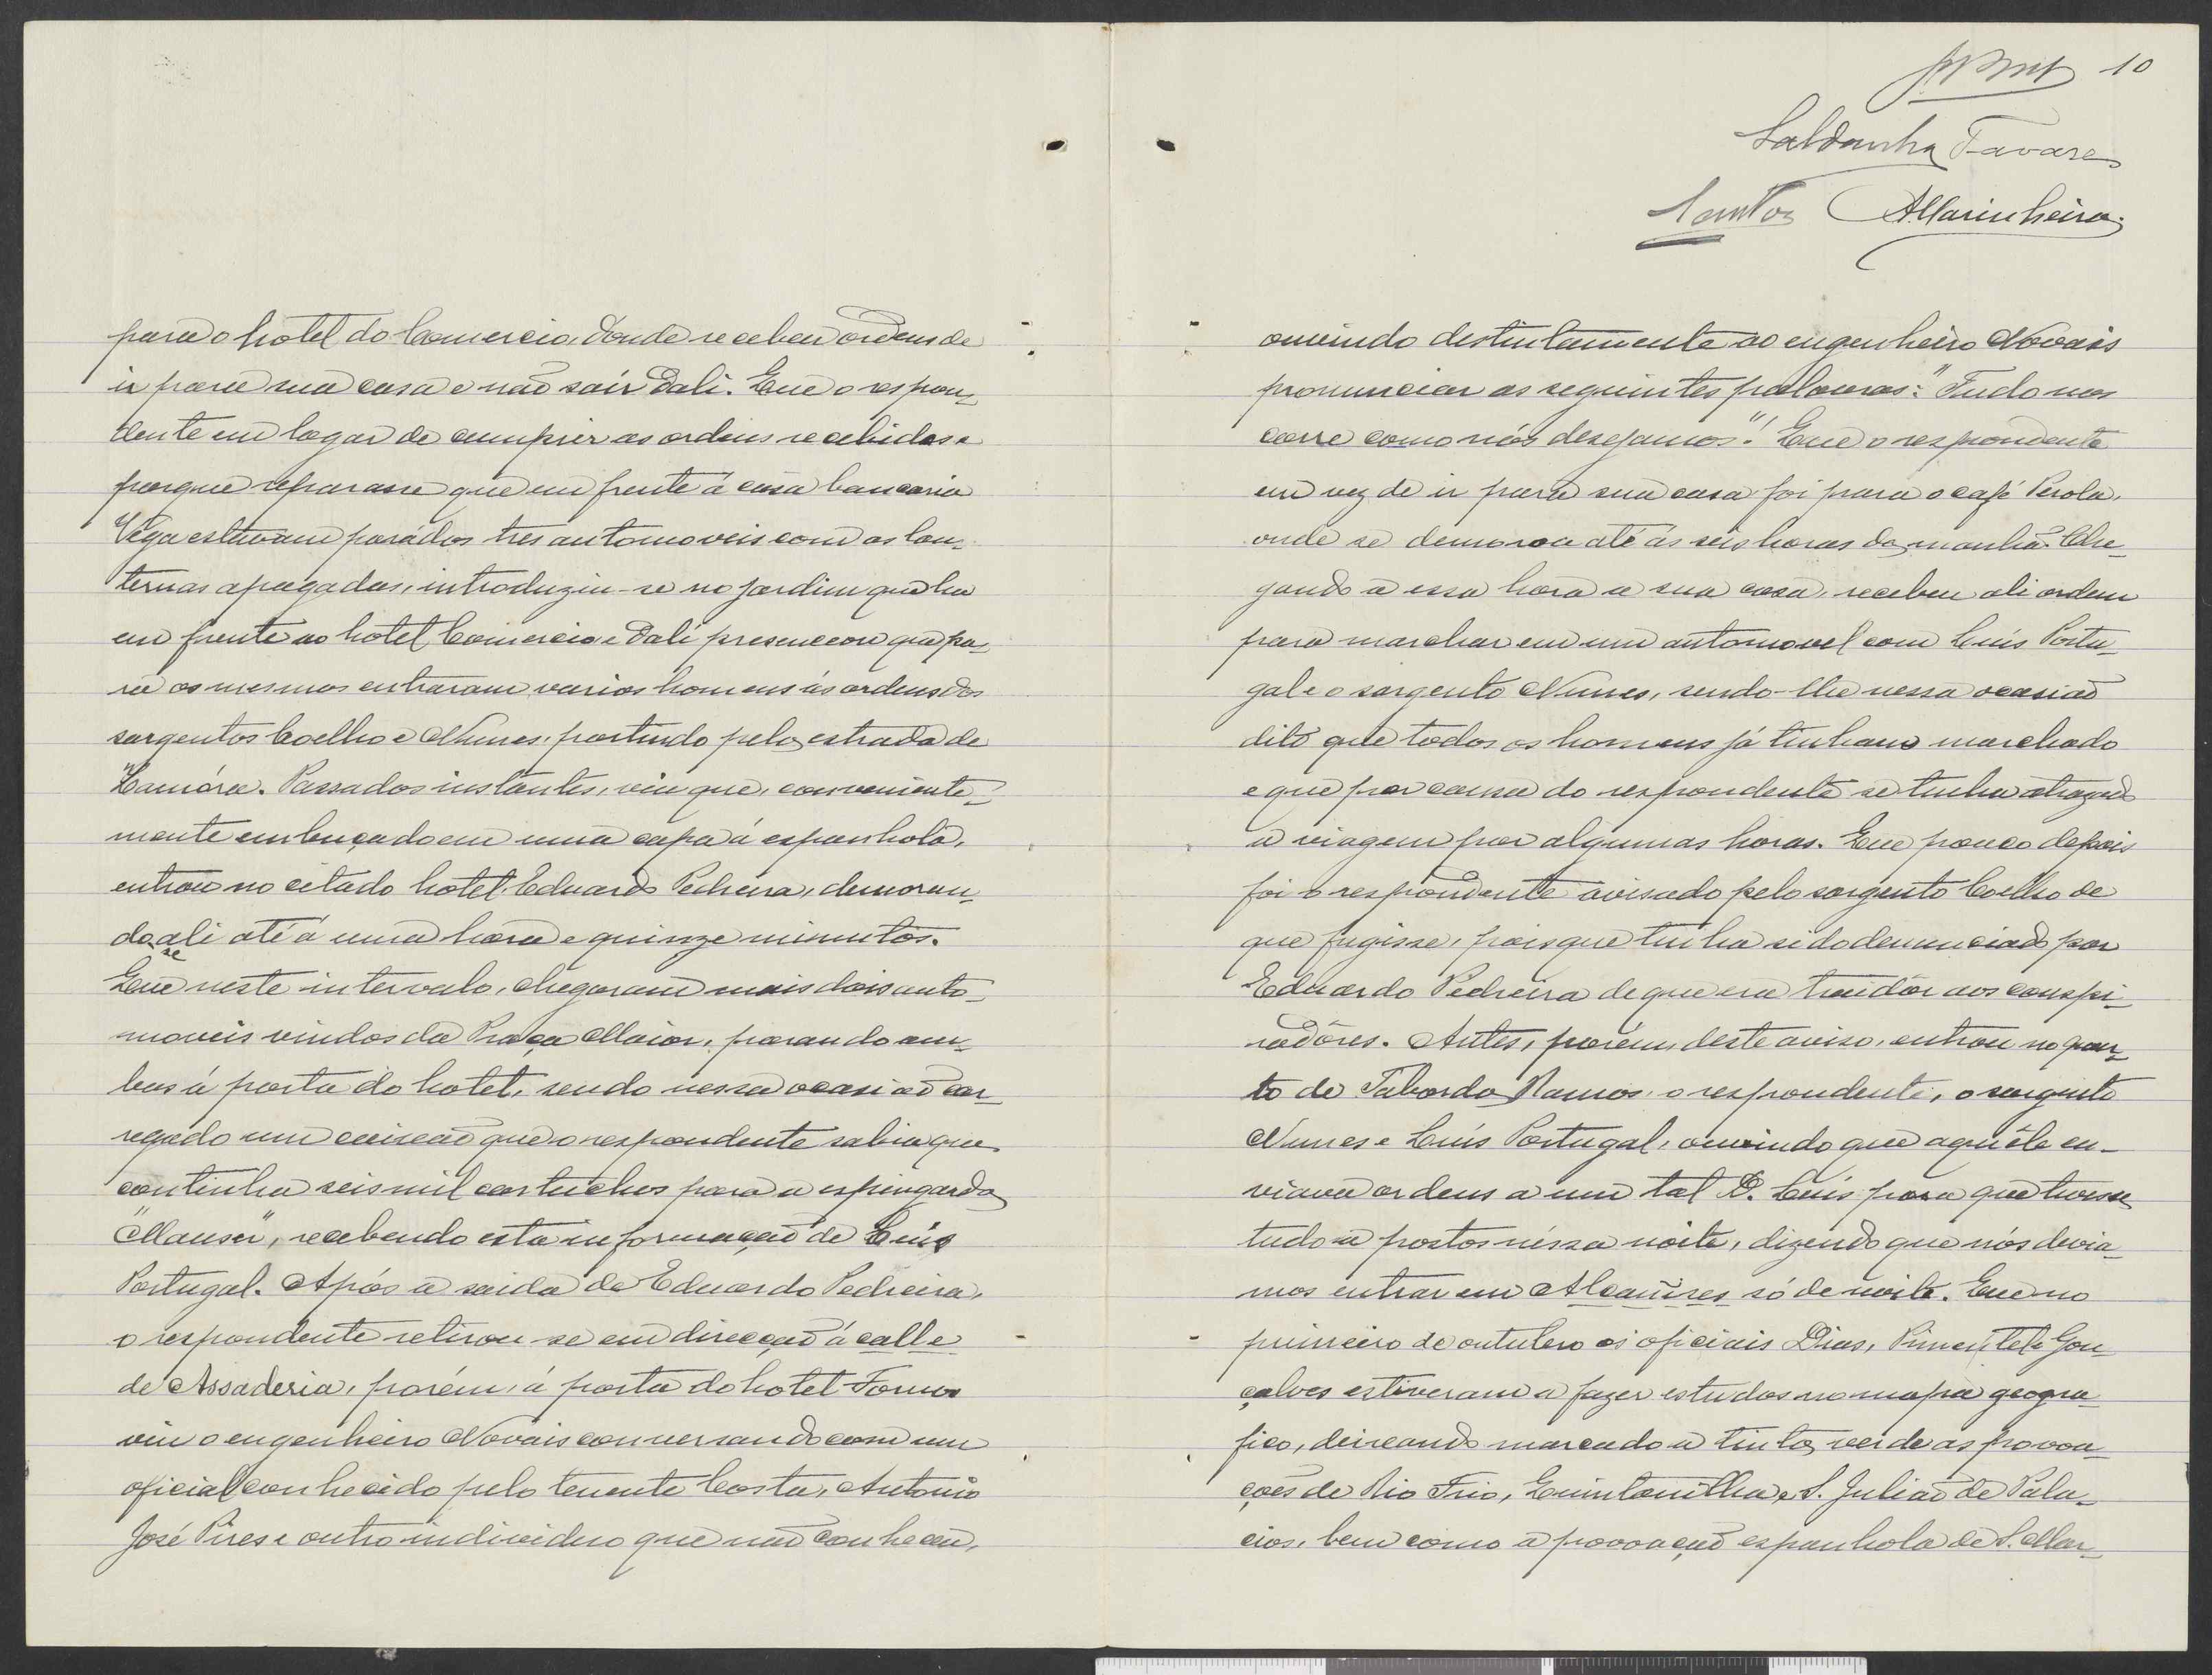 para o hotel do Comercio, donde recebeu ordens de
ir para sua casa e não saír dali. Que o respon-
dente em logar de cumprir as ordens recebidas e
porque reparasse que em frente á casa bancaria
Véga estavam parádos tres automoveis com as lan-
ternas apagadas, introduziu-se no jardim que ha
em frente ao hotel Comercio e dali presenceou que pa-
ra os mesmos entraram varios homens ás ordens dos
sargentos Coelho e Nunes, partindo pela estrada de
Zamóra. Passados instantes, viu que, conveniente-
mente embuçado em uma capa á espanhola,
entrou no citado hotel Eduardo Pedreira, demoran-
do se ali até á uma hora e quinze minutos.
Que neste intervalo, chegaram mais dois auto-
moveis vindos da Praça Maior, parando am-
bos á porta do hotel, sendo nessa ocasião car-
regado um caixão que o respondente sabia que
continha seis mil cartuchos para a espingarda
"Mauser", recebendo esta informação de Luís
Portugal. Após a saida de Eduardo Pedreira,
o respondente retirou-se em direcção á calle
de Assaderia, porém, á porta do hotel Fornos
viu o engenheiro Novais conversando com um
oficial conhecido pelo tenente Costa, Antonio
José Pires e outro individuo que não conheceu,
10
Saldanha Tavares
Santos A Marinheiro
ouvindo destintamente ao engenheiro Novais
pronunciar as seguintes palavras: "Tudo nos
corre como nós desejamos"! Que o respondente
em vez de ir para sua casa foi para o café Perola,
onde se demorou até ás seis horas da manhã. Che-
gando a essa hora a sua casa, recebeu ali ordem
para marchar em um automovel com Luís Portu-
gal e o sargento Nunes, sendo-lhe nessa ocasião
dito que todos os homens já tinham marchado
e que por causa do respondente se tinha atrazado
a viagem por algumas horas. Que pouco depois
foi o respondente avisado pelo sargento Coelho de
que fugisse, pois que tinha sido denunciado por
Eduardo Pedreira de que era traidôr aos conspi-
radôres. Antes, porém, deste aviso, entrou no quar-
to de Taborda Ramos, o respondente, o sargento
Nunes e Luís Portugal, ouvindo que aquêle en-
viava ordens a um tal D. Luís para que tivesse
tudo a postos néssa noite, dizendo que nós devia-
mos entrar em Alcañises só de noite. Que no
primeiro de outubro os oficiais Dias, Pimentel e Gon-
çalves estiveram a fazer estudos no mapa geogra-
fico, deixando marcado a tinta verde as povoa-
ções de Rio Frio, Quintanilha e S. Julião de Pala-
cios, bem como a povoação espanhola de S. Mar-